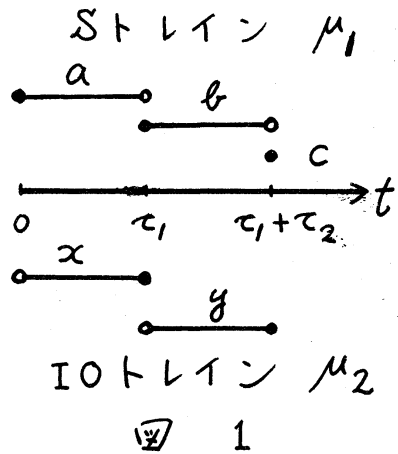 Sトレイン μ₁
a
b
c
t
0 τ₁ τ₁+τ₂
x
y
IOトレイン μ₂
図 1